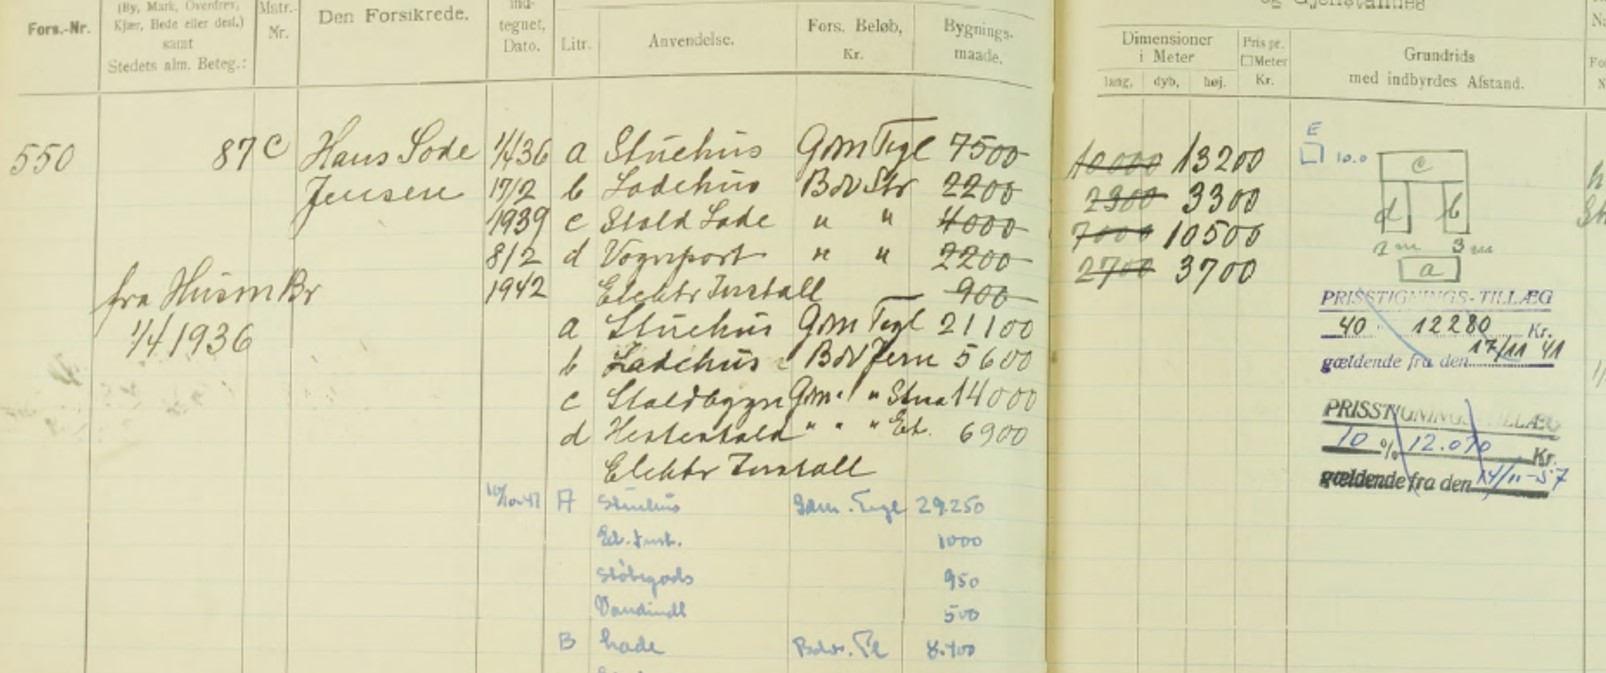 og Gjenstandes
Fors.-Nr.
(By, Mark, Overdrev,
Kjær, Hede eller desl.)
samt
Stedets alm. Beteg.:
Matr.-
Nr.
Den Forsikrede.
Ind-
tegnet,
Dato.
Litr.
Anvendelse.
Fors. Beløb,
Kr.
Bygnings-
maade.
Dimensioner
i Meter
lang, dyb, høj.
Pris pr.
□Meter
Kr.
Grundrids
med indbyrdes Afstand.
550 87 C Hans Sode 1/4 36 a Stuehus Grm Tegl 7500 10000 13200
Jensen 17/2 b Ladehus Bdv Str 2200 2300 3300
1939 c Stald Lade " " 4000 7000 10500
8/2 d Vognport " " 2200 2700 3700
fra Husm Br 1942 Elektr Install 900
1/4 1936 a Stuehus Grm Tegl 21100
b Ladehus Bdv Jern 5600
c Staldbygn Grm " 14000
d Hestestald " " " Et. 6900
Elektr Install
A Stuehus Gdm. Tegl 29.250
El. Inst. 1000
Støbegods 950
Vandindl 500
B Lade Bdv. 8.400
E
10.0
c
d b
2 m 3 m
a
PRISSTIGNINGS-TILLÆG
40 12280 Kr.
gældende fra den 17/11 41
PRISSTIGNINGS-TILLÆG
10 % 12.070 Kr.
gældende fra den 14/11-57